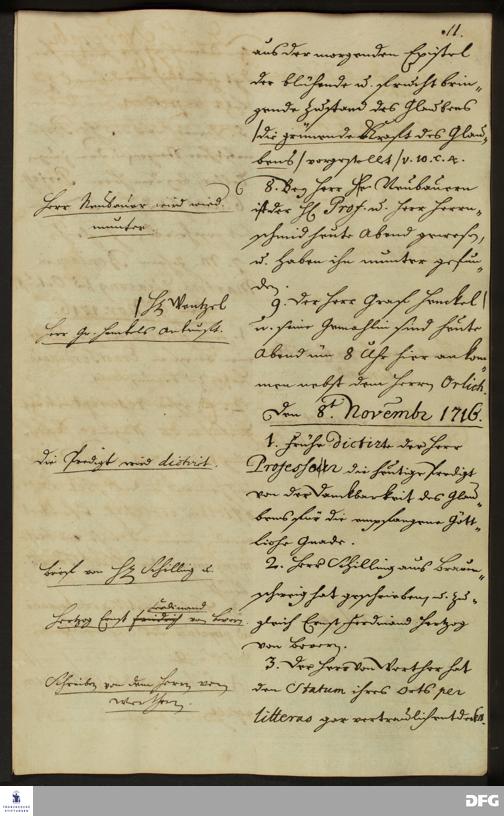 11.
aus der morgenden Epistel
der blühende u. frucht brin-
gende Zustand des Glaubens
/die grünende Krafft des Glau-
bens/ vorgestellt /v. 10. c. 4.
Herr Neubauer wird wied.
munter.
8. Bey Herr Neubauern
ist der H. Prof. u. Herr Herrn-
schmid heute Abend gewesen,
u. haben ihn munter gefun-
den.
H. Wentzel
Herr Gr. Henkels Ankunft.
9. Der Herr Graf Henckel
u. seine Gemahlin sind heute
Abend um 8 Uhr hier ankom-
men nebst dem Herrn Orlich.
Den 8t. Novembr 1716.
Die Predigt wird dictirt.
1. Frühe dictirte der Herr
Professor die heutige Predigt
von der Danckbarkeit des Glau-
bens für die empfangene Gött-
liche Gnade.
Brief von H. Schilling u.
Hertzog Ernst Ferdinand von Bevern
2. Herr Schilling aus Braun-
schweig hat geschrieben, u. zu-
gleich Ernst Ferdinand Hertzog
von Bevern.
Schreiben von dem Herrn von
Werthern.
3. Der Herr von Werther hat
den Statum ihres Orts per
litteras gar vertraulich entdeckt.
FRANCKESCHE
STIFTUNGEN
DFG